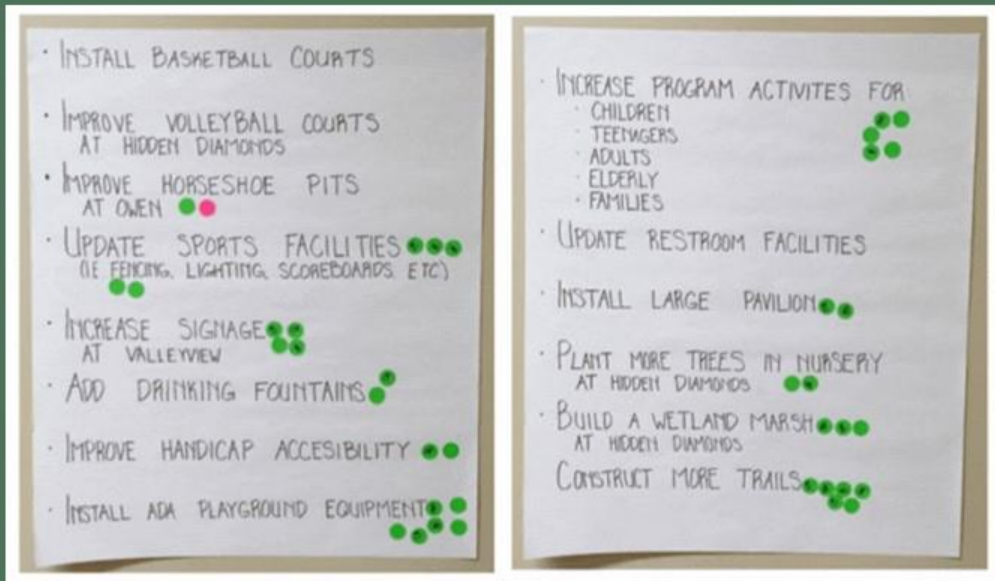 · INSTALL BASKETBALL COURTS
· IMPROVE VOLLEYBALL COURTS
AT HIDDEN DIAMONDS
· IMPROVE HORSESHOE PITS
AT OWEN
· UPDATE SPORTS FACILITIES
(IE FENCING, LIGHTING, SCOREBOARDS ETC)
· INCREASE SIGNAGE
AT VALLEYVIEW
· ADD DRINKING FOUNTAINS
· IMPROVE HANDICAP ACCESIBILITY
· INSTALL ADA PLAYGROUND EQUIPMENT
· INCREASE PROGRAM ACTIVITES FOR
· CHILDREN
· TEENAGERS
· ADULTS
· ELDERLY
· FAMILIES
· UPDATE RESTROOM FACILITIES
· INSTALL LARGE PAVILION
· PLANT MORE TREES IN NURSERY
AT HIDDEN DIAMONDS
· BUILD A WETLAND MARSH
AT HIDDEN DIAMONDS
CONSTRUCT MORE TRAILS